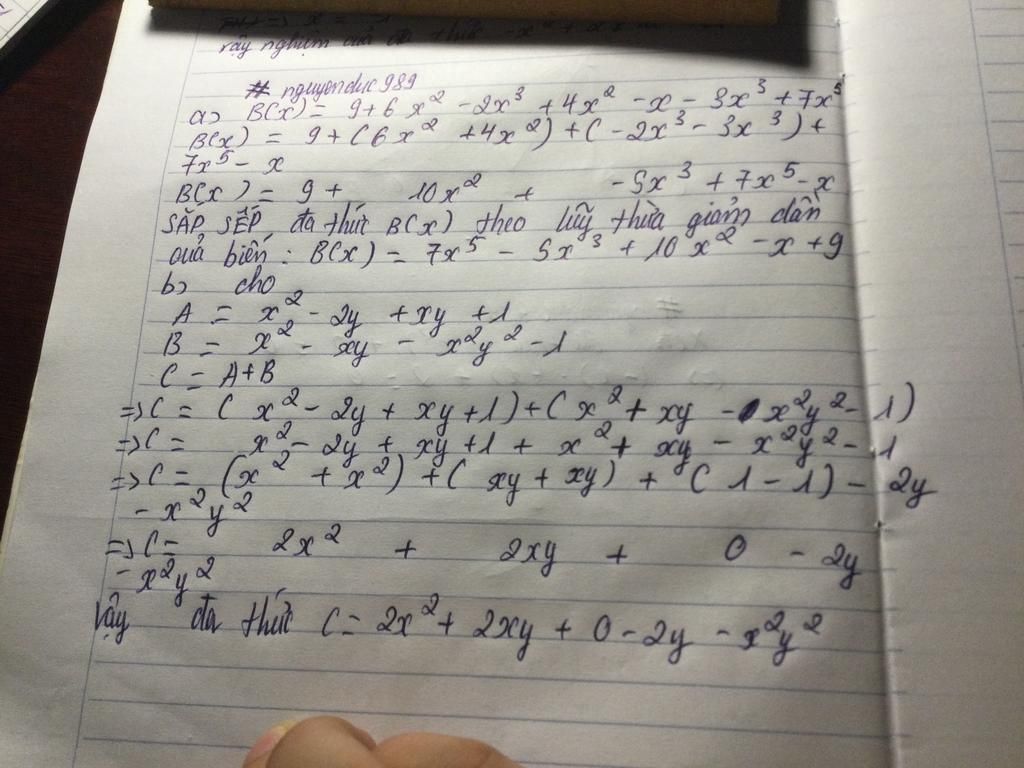 vậy nghiệm của đa thức -x² + x
# nguyenduc989
a) B(x) = 9 + 6x² - 2x³ + 4x² - x - 3x³ + 7x⁵
B(x) = 9 + (6x² + 4x²) + (-2x³ - 3x³) +
7x⁵ - x
B(x) = 9 + 10x² + -5x³ + 7x⁵ - x
SẮP SẾP đa thức B(x) theo lũy thừa giảm dần
của biến : B(x) = 7x⁵ - 5x³ + 10x² - x + 9
b) cho
A = x² - 2y + xy + 1
B = x² - xy - x²y² - 1
C = A + B
=> C = (x² - 2y + xy + 1) + (x² + xy - x²y² - 1)
=> C = x² - 2y + xy + 1 + x² + xy - x²y² - 1
=> C = (x² + x²) + (xy + xy) + (1 - 1) - 2y
- x²y²
=> C = 2x² + 2xy + 0 - 2y
- x²y²
Vậy đa thức C = 2x² + 2xy + 0 - 2y - x²y²